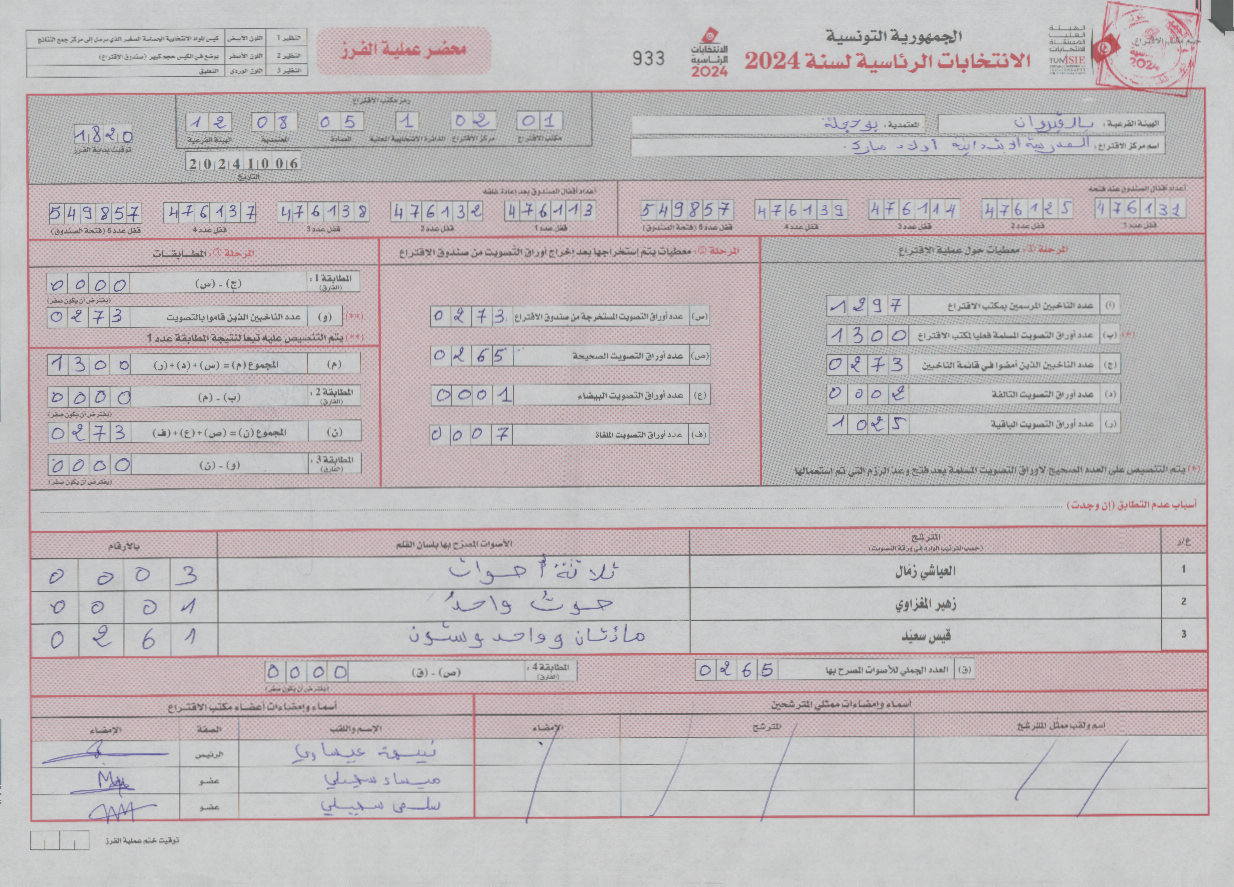 الجمهورية التونسية
الانتخابات الرئاسية لسنة 2024
الهيئة
العليا
المستقلة
للانتخابات
TUNISIE
الانتخابات
الرئاسية
2024
933
محضر عملية الفرز
النظير 1 اللون الأبيض كيس المواد الانتخابية الحساسة الصغير الذي يرسل إلى مركز جمع النتائج
النظير 2 اللون الأصفر يوضع في الكيس حجم كبير (صندوق الاقتراع)
النظير 3 اللون الوردي التعليق
الهيئة الفرعية: بالقيروان المعتمدية: بوحجلة
اسم مركز الاقتراع: المدرسة الابتدائية أولاد مبارك
رمز مكتب الاقتراع
01 02 1 05 08 12
مكتب الاقتراع مركز الاقتراع الدائرة الانتخابية المحلية العمادة المعتمدية الهيئة الفرعية
1820
توقيت بداية الفرز
20241006
التاريخ
أعداد أقفال الصندوق عند فتحه
476131 476125 476114 476139 549857
قفل عدد 1 قفل عدد 2 قفل عدد 3 قفل عدد 4 قفل عدد 5 (فتحة الصندوق)
أعداد أقفال الصندوق بعد إعادة غلقه
476113 476132 476138 476137 549857
قفل عدد 1 قفل عدد 2 قفل عدد 3 قفل عدد 4 قفل عدد 5 (فتحة الصندوق)
المرحلة ①: معطيات حول عملية الاقتراع
(أ) عدد الناخبين المرسمين بمكتب الاقتراع 1297
(*) (ب) عدد أوراق التصويت المسلمة فعليا لمكتب الاقتراع 1300
(ج) عدد الناخبين الذين أمضوا في قائمة الناخبين 0273
(د) عدد أوراق التصويت التالفة 0002
(ر) عدد أوراق التصويت الباقية 1025
(*) يتم التنصيص على العدد الصحيح لأوراق التصويت المسلمة بعد فتح وعد الرزم التي تم استعمالها
المرحلة ②: معطيات يتم استخراجها بعد إخراج أوراق التصويت من صندوق الاقتراع
(س) عدد أوراق التصويت المستخرجة من صندوق الاقتراع 0273
(ص) عدد أوراق التصويت الصحيحة 0265
(ع) عدد أوراق التصويت البيضاء 0001
(ف) عدد أوراق التصويت الملغاة 0007
المطابقات
المطابقة 1: (الفارق) (ج) - (س) 0000
(يفترض أن يكون صفر)
(**) (و) عدد الناخبين الذين قاموا بالتصويت 0273
(**) يتم التنصيص عليه تبعا لنتيجة المطابقة عدد 1
(م) المجموع (م) = (س) + (د) + (ر) 1300
المطابقة 2: (الفارق) (ب) - (م) 0000
(يفترض أن يكون صفر)
(ن) المجموع (ن) = (ص) + (ع) + (ف) 0273
المطابقة 3: (الفارق) (و) - (ن) 0000
(يفترض أن يكون صفر)
أسباب عدم التطابق (إن وجدت)
ع/د المترشح الأصوات المصرح بها بلسان القلم بالأرقام
(حسب الترتيب الوارد في ورقة التصويت)
1 العياشي زمال ثلاثة أصوات 0003
2 زهير المغزاوي صوت واحد 0001
3 قيس سعيّد مائتان وواحد وستون 0261
(ق) العدد الجملي للأصوات المصرح بها 0265
المطابقة 4: (الفارق) (ص) - (ق) 0000
(يفترض أن يكون صفر)
أسماء وإمضاءات ممثلي المترشحين
اسم ولقب ممثل المترشح المترشح الإمضاء
أسماء وإمضاءات أعضاء مكتب الاقتراع
الإسم واللقب الصفة الإمضاء
نبيهة عيساوي الرئيس
ميساء سحيلي عضو
سلمى سحيلي عضو
توقيت ختم عملية الفرز